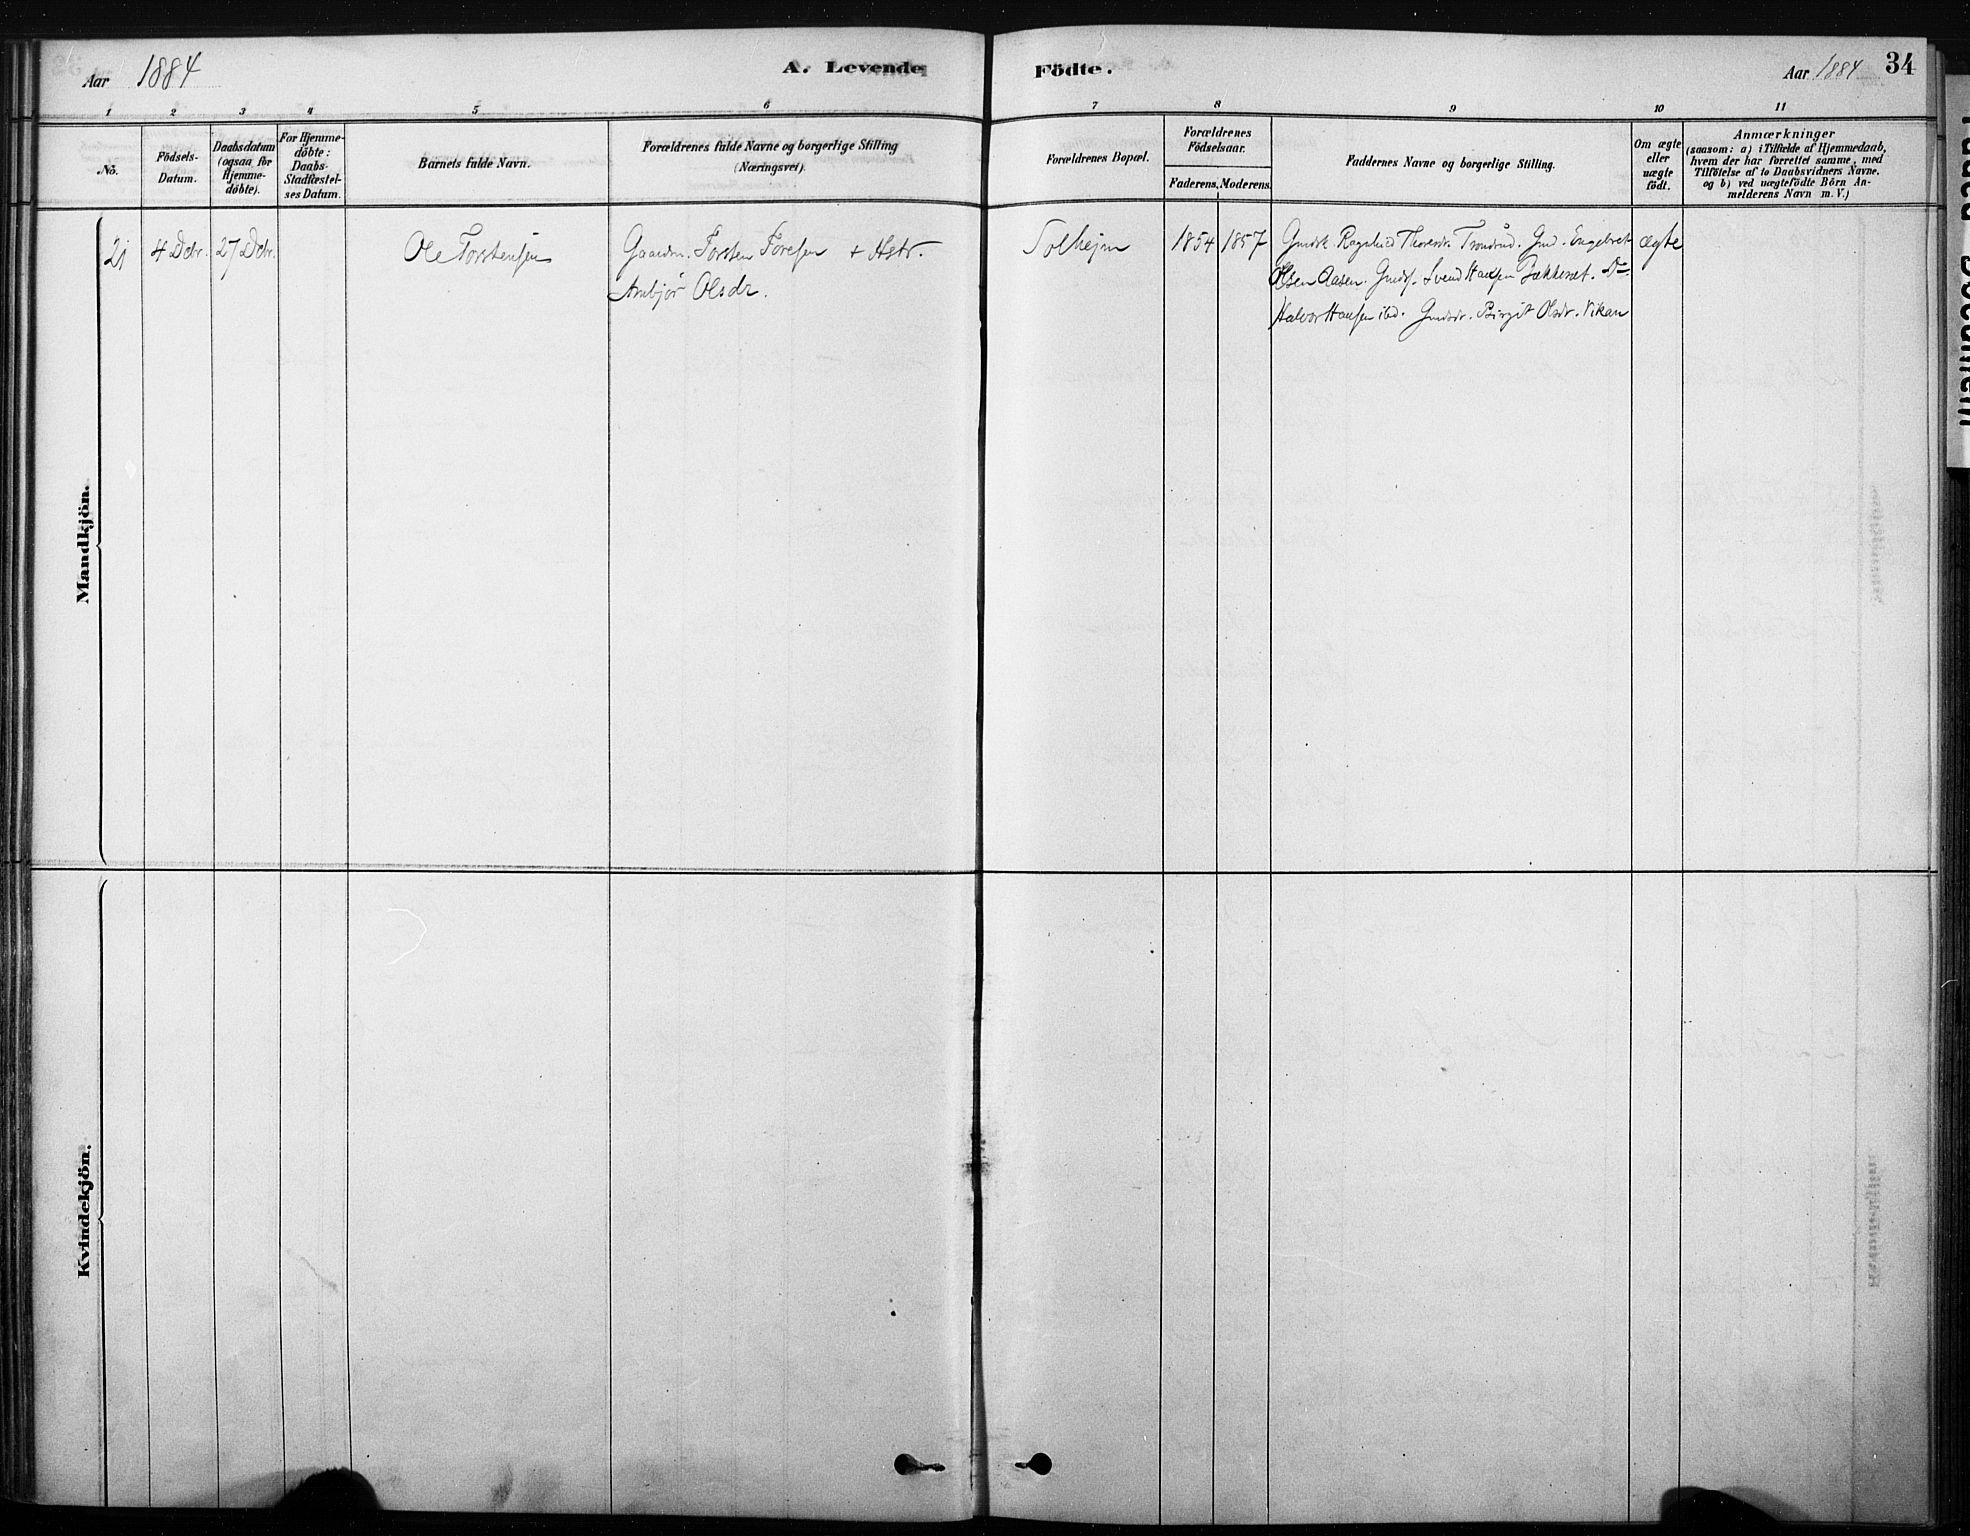 Aar 1884 A. Levende Födte. Aar 1884 34
1 2 3 4 5 6 7 8 9 10 11
No.
Födsels-
Datum.
Daabsdatum
(ogsaa for
Hjemme-
döbte).
For Hjemme-
döbte:
Daabs-
Stadfæstel-
ses Datum.
Barnets fulde Navn.
Forældrenes fulde Navne og borgerlige Stilling
(Næringsvei).
Forældrenes Bopæl.
Forældrenes
Födselsaar.
Faderens. Moderens.
Faddernes Navne og borgerlige Stilling.
Om ægte
eller
uægte
födt.
Anmærkninger
(saasom: a) i Tilfælde af Hjemmedaab,
hvem der har forrettet samme, med
Tilföielse af to Daabsvidners Navne.
og b) ved uægtefödte Börn An-
melderens Navn m. V.)
Mandkjön.
21 4 Dcbr. 27 Dcbr. Ole Torstensen Gaardm. Torsten Toresen + Hstr. Solhejm 1854 1857 Gmdsk. Ragnhild Thoresdr. Trondrud. Gmd. Engebret ægte
Anbjör Olsdr. Olsen Aasen. Gmdsf. Svend Hansen Bækkenet. Do
Halvor Hansen ibd. Gmdsdr. Birgit Olsdr. Vikan
Kvindekjön.